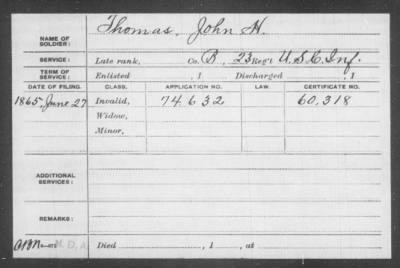 NAME OF SOLDIER: Thomas, John H.
SERVICE: Late rank, Co. B, 23 Reg't U.S.C. Inf.
TERM OF SERVICE: Enlisted , 1 Discharged , 1
DATE OF FILING. CLASS. APPLICATION NO. LAW. CERTIFICATE NO.
1865, June 27 Invalid, 74.632 60,318
Widow,
Minor,
ADDITIONAL SERVICES:
REMARKS:
N.D.A. Died , 1 , at